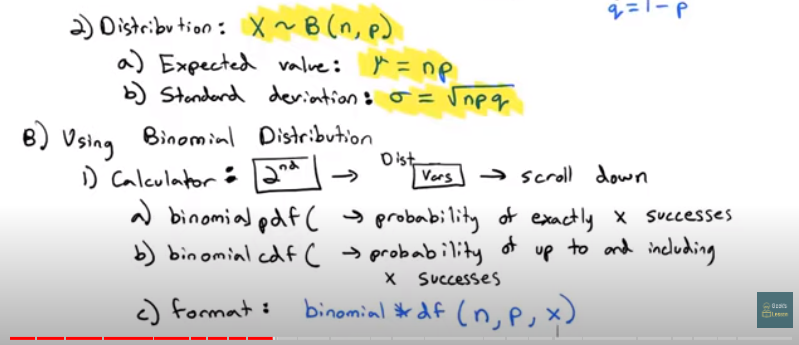 q = 1 - p
2) Distribution: X ~ B(n, p)
a) Expected value: μ = np
b) Standard deviation: σ = √npq
B) Using Binomial Distribution
1) Calculator: 2nd → Dist Vars → scroll down
a) binomial pdf( → probability of exactly x successes
b) binomial cdf( → probability of up to and including
x successes
c) format: binomial * df (n, p, x)